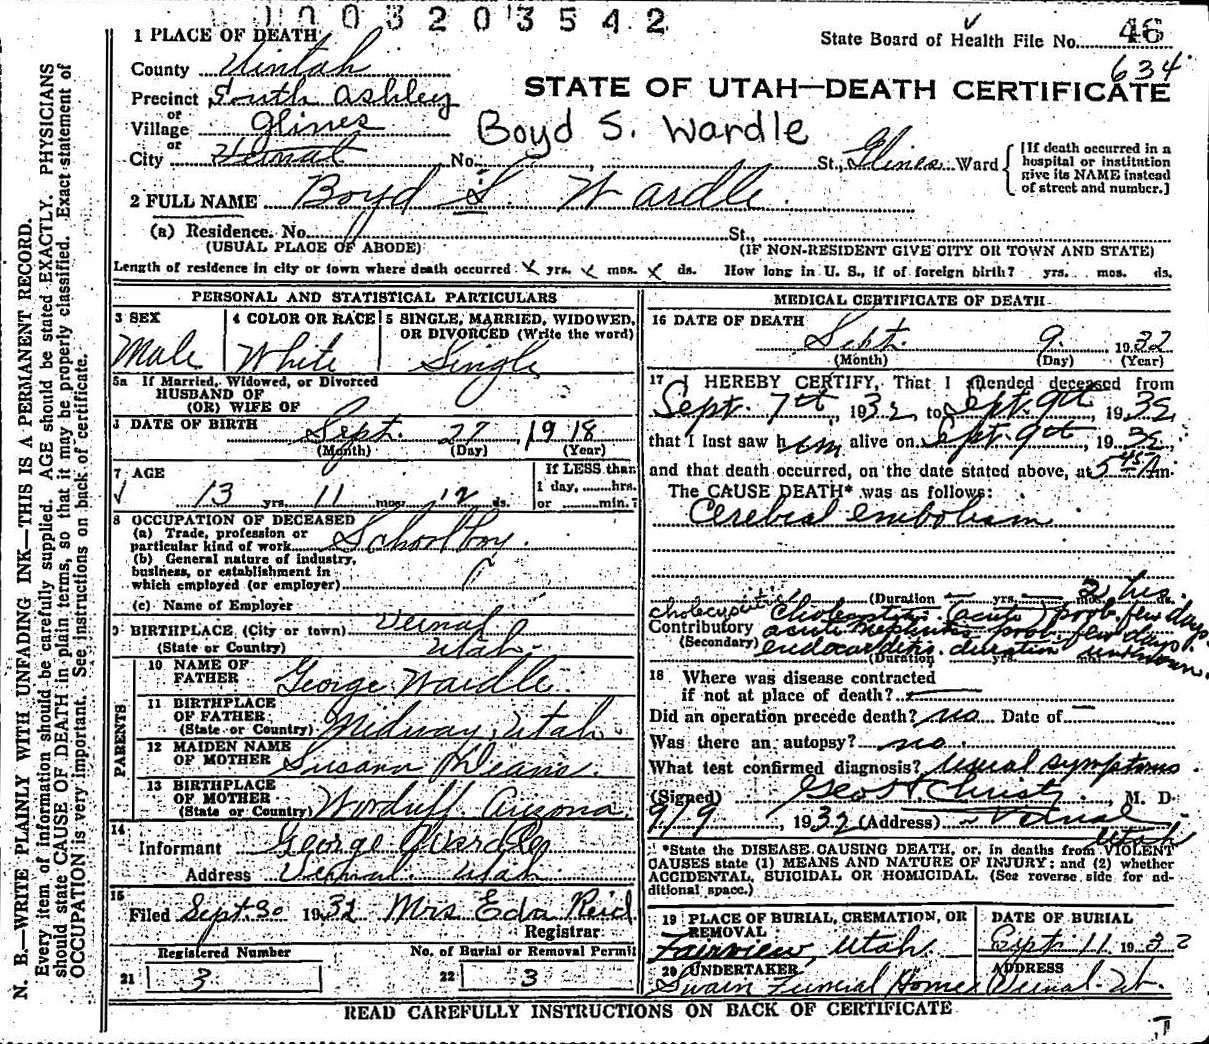 1003203542
1 PLACE OF DEATH
County Uintah
State Board of Health File No. 46
634
STATE OF UTAH—DEATH CERTIFICATE
Precinct South Ashley
or
Village Glines
Boyd S. Wardle
or
City Vernal No. St., Glines Ward
[If death occurred in a hospital or institution give its NAME instead of street and number.]
2 FULL NAME Boyd S. Wardle.
(a) Residence. No. St.,
(USUAL PLACE OF ABODE) (IF NON-RESIDENT GIVE CITY OR TOWN AND STATE)
Length of residence in city or town where death occurred x yrs. x mos. x ds. How long in U. S., if of foreign birth? yrs. mos. ds.
PERSONAL AND STATISTICAL PARTICULARS
3 SEX
Male
4 COLOR OR RACE
White
5 SINGLE, MARRIED, WIDOWED, OR DIVORCED (Write the word)
Single
5a If Married, Widowed, or Divorced
HUSBAND OF
(OR) WIFE OF
DATE OF BIRTH Sept. 27 1918
(Month) (Day) (Year)
7 AGE
13 yrs. 11 mos. 12 ds.
If LESS than
1 day, hrs.
or min.
8 OCCUPATION OF DECEASED
(a) Trade, profession or
particular kind of work Schoolboy.
(b) General nature of industry,
business, or establishment in
which employed (or employer)
(c) Name of Employer
9 BIRTHPLACE (City or town) Vernal
(State or Country) Utah.
PARENTS
10 NAME OF
FATHER George Wardle.
11 BIRTHPLACE
OF FATHER
(State or Country) Midway, Utah.
12 MAIDEN NAME
OF MOTHER Susana
13 BIRTHPLACE
OF MOTHER
(State or Country) Woodruff, Arizona.
14
Informant George Wardle
Address Vernal Utah
15
Filed Sept. 30 1932 Mrs Eda Reid
Registrar
Registered Number
21 3
No. of Burial or Removal Permit
22 3
MEDICAL CERTIFICATE OF DEATH
16 DATE OF DEATH
Sept. 9 1932
(Month) (Day) (Year)
17 I HEREBY CERTIFY, That I attended deceased from
Sept. 7th, 1932 to Sept. 9th, 1932
that I last saw him alive on Sept. 9th, 1932
and that death occurred, on the date stated above, at 5 45 A m.
The CAUSE DEATH* was as follows:
Cerebral embolism
(Duration yrs. mos. 2 hrs. ds.
Contributory
(Secondary)
(acute) prob. few days
acute nephritis prob. few days
endocarditis. duration unknown.
(Duration yrs. mos.
18 Where was disease contracted
if not at place of death?
Did an operation precede death? no Date of
Was there an autopsy? no
What test confirmed diagnosis? usual symptoms.
(Signed) Geo H Christy, M. D.
9/9, 1932 (Address) Vernal
Utah
*State the DISEASE CAUSING DEATH, or, in deaths from VIOLENT
CAUSES state (1) MEANS AND NATURE OF INJURY; and (2) whether
ACCIDENTAL, SUICIDAL OR HOMICIDAL. (See reverse side for ad-
ditional space.)
19 PLACE OF BURIAL, CREMATION, OR
REMOVAL
Fairview, Utah.
DATE OF BURIAL
Sept. 11 1932
20 UNDERTAKER
Swain Funeral Home
ADDRESS
Vernal-Ut.
READ CAREFULLY INSTRUCTIONS ON BACK OF CERTIFICATE
N. B.—WRITE PLAINLY WITH UNFADING INK—THIS IS A PERMANENT RECORD.
Every item of information should be carefully supplied. AGE should be stated EXACTLY. PHYSICIANS
should state CAUSE OF DEATH in plain terms, so that it may be properly classified. Exact statement of
OCCUPATION is very important. See instructions on back of certificate.